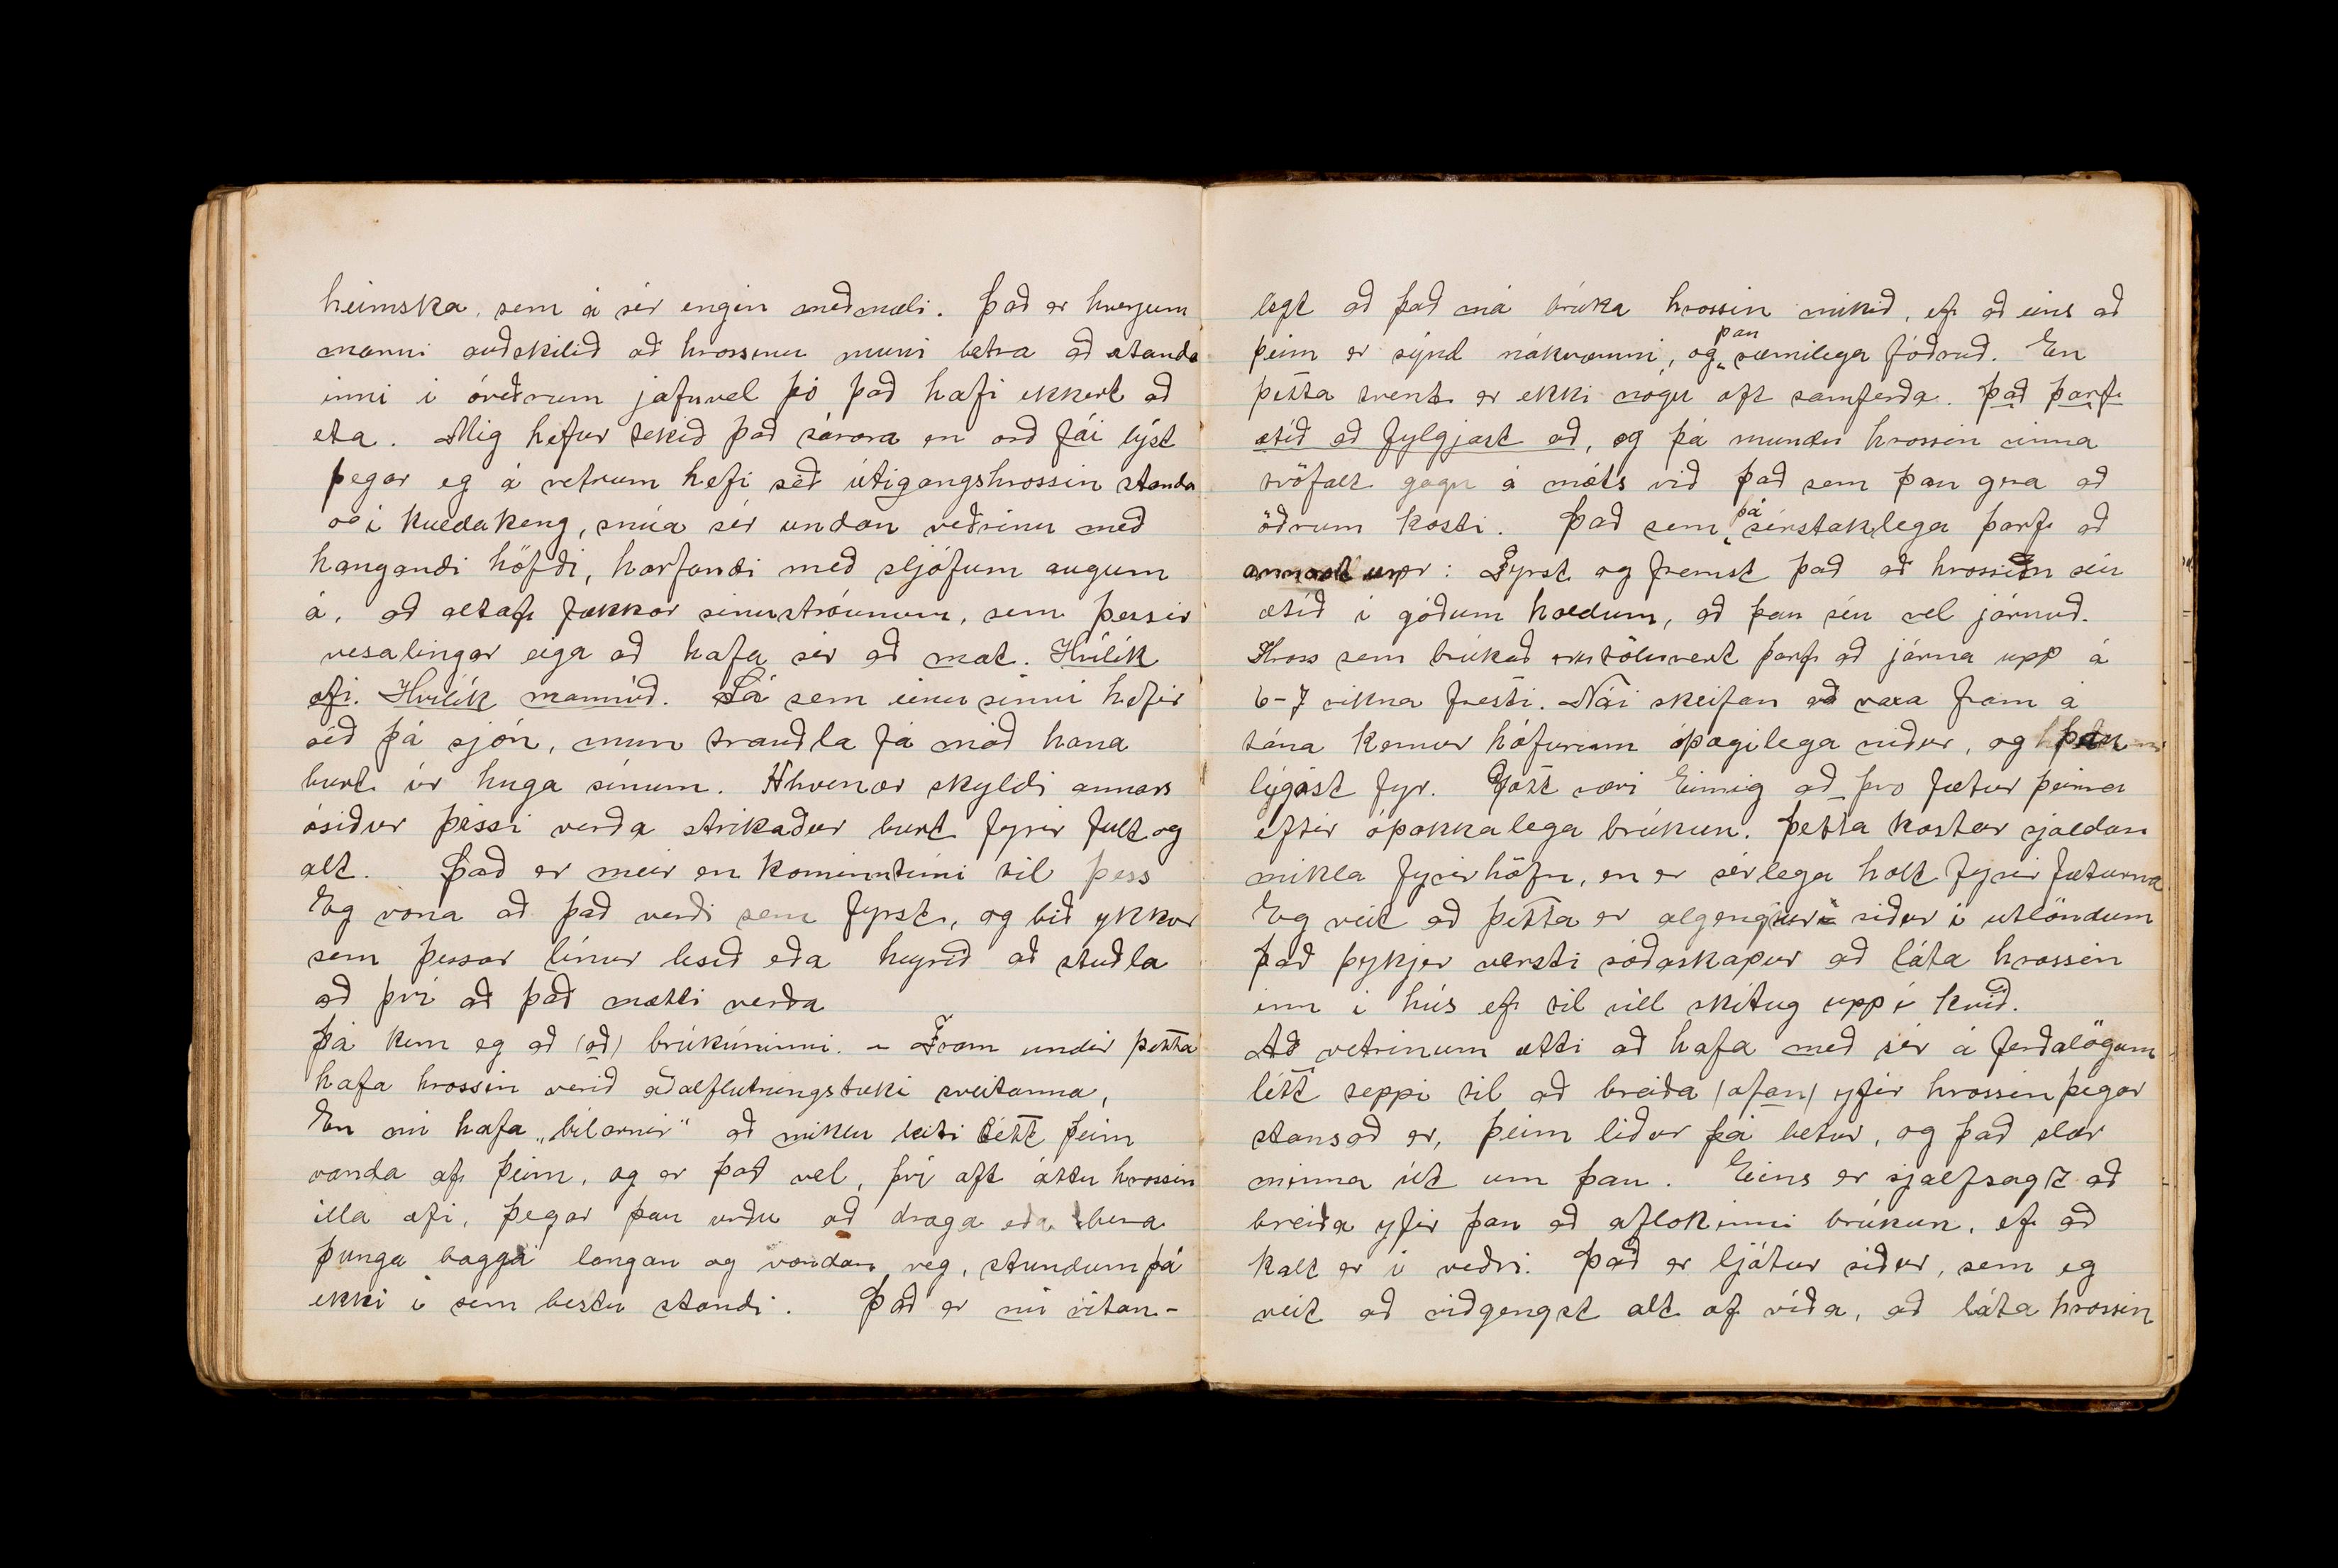 heimska, sem á sér engin meðmæli. Það er hverjum
manni auðskilið að hrossinu muni betra að standa
inni í óveðrum jafnvel þó það hafi ekkert að
eta. Mig hefur tekið það sárara en orð fái lýst
þegar eg á vetrum hefi séð útigangshrossin standa
í kuldakeng, snúa sér undan veðrinu með
hangandi höfði, horfandi með sljófum augum
á, að altaf fækkar sinustráunum, sem þessir
vesalingar eiga að hafa sér að mat. Hvílík
æfi. Hvílík mannúð. Sá sem einu sinni hefir
séð þá sjón, mun trauðla fá máð hana
burt úr huga sínum. Hvenær skyldi annars
ósiður þessi verða strikaður burt fyrir fult og
alt. Það er meir en kominn tími til þess
Eg vona að það verði sem fyrst, og bið ykkur
sem þessar línur lesið eða heyrið að stuðla
að því að það mætti verða
Þá kem eg að (að) brúkúninni. - Fram undir þetta
hafa hrossin verið aðalflutningstæki sveitanna,
En nú hafa „bílarnir" að miklu leiti létt þeim
vanda af þeim, og er það vel, því oft áttu hrossin
illa æfi, þegar þau urðu að draga eða bera
þunga bagga langan og vondan veg, stundum þá
ekki í sem bestu standi. Það er nú vitan-
legt að það má brúka hrossin mikið, ef að eins að
þeim er sýnd nákvæmni, og þau sæmilega fóðruð. En
þetta tvent er ekki nógu oft samferða. Það þarf
ætíð að fylgjast að, og þá mundu hrossin vinna
tvöfalt gagn á móts við það sem þau gera að
öðrum kosti. Það sem þá sérstaklega þarf að
annast er: Fyrst og fremst það að hrossin séu
ætíð í góðum holdum, að þau séu vel járnuð.
Hross sem brúkað er töluvert þarf að járna upp á
6-7 vikna fresti. Nái skeifan að vaxa fram á
tána kemur hófurinn óþægilega niður, og þau
lýjast fyr. Gott væri Einnig að þvo fætur þeirra
eftir óþokkalega brúkun. Þetta kostar sjaldan
mikla fyrirhöfn, en er sérlega holt fyrir fæturna
Eg veit að þetta er algengur siður í utlöndum
það þykjer versti sóðaskapur að láta hrossin
inn í hús ef til vill skítug upp í kvið.
Að vetrinum ætti að hafa með sér á ferðalögum
létt teppi til að breiða (ofan) yfir hrossin þegar
stansað er, þeim líður þá betur, og það slær
minna út um þau. Eins er sjalfsagt að
breiða yfir þau að aflokinni brúkun, ef að
kalt er í veðri. Það er ljótur siður, sem eg
veit að viðgengst alt of víða, að láta hrossin